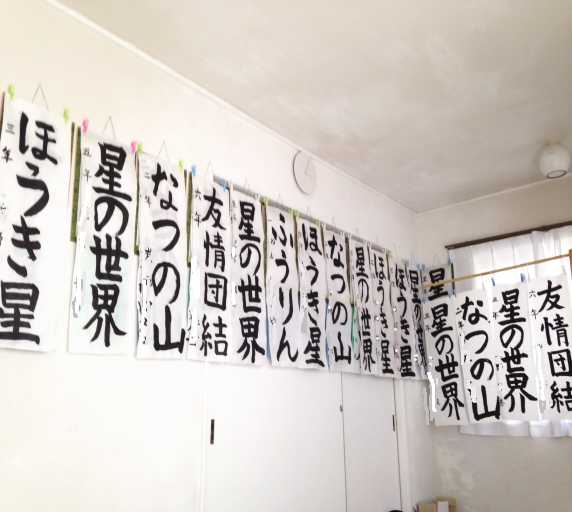 ほうき星
三年
星の世界
五年
なつの山
二年
友情団結
六年
星の世界
ふうりん
ほうき星
なつの山
星の世界
ほうき星
ほうき星
星の世界
星
星の世界
なつの山
星の世界
友情団結